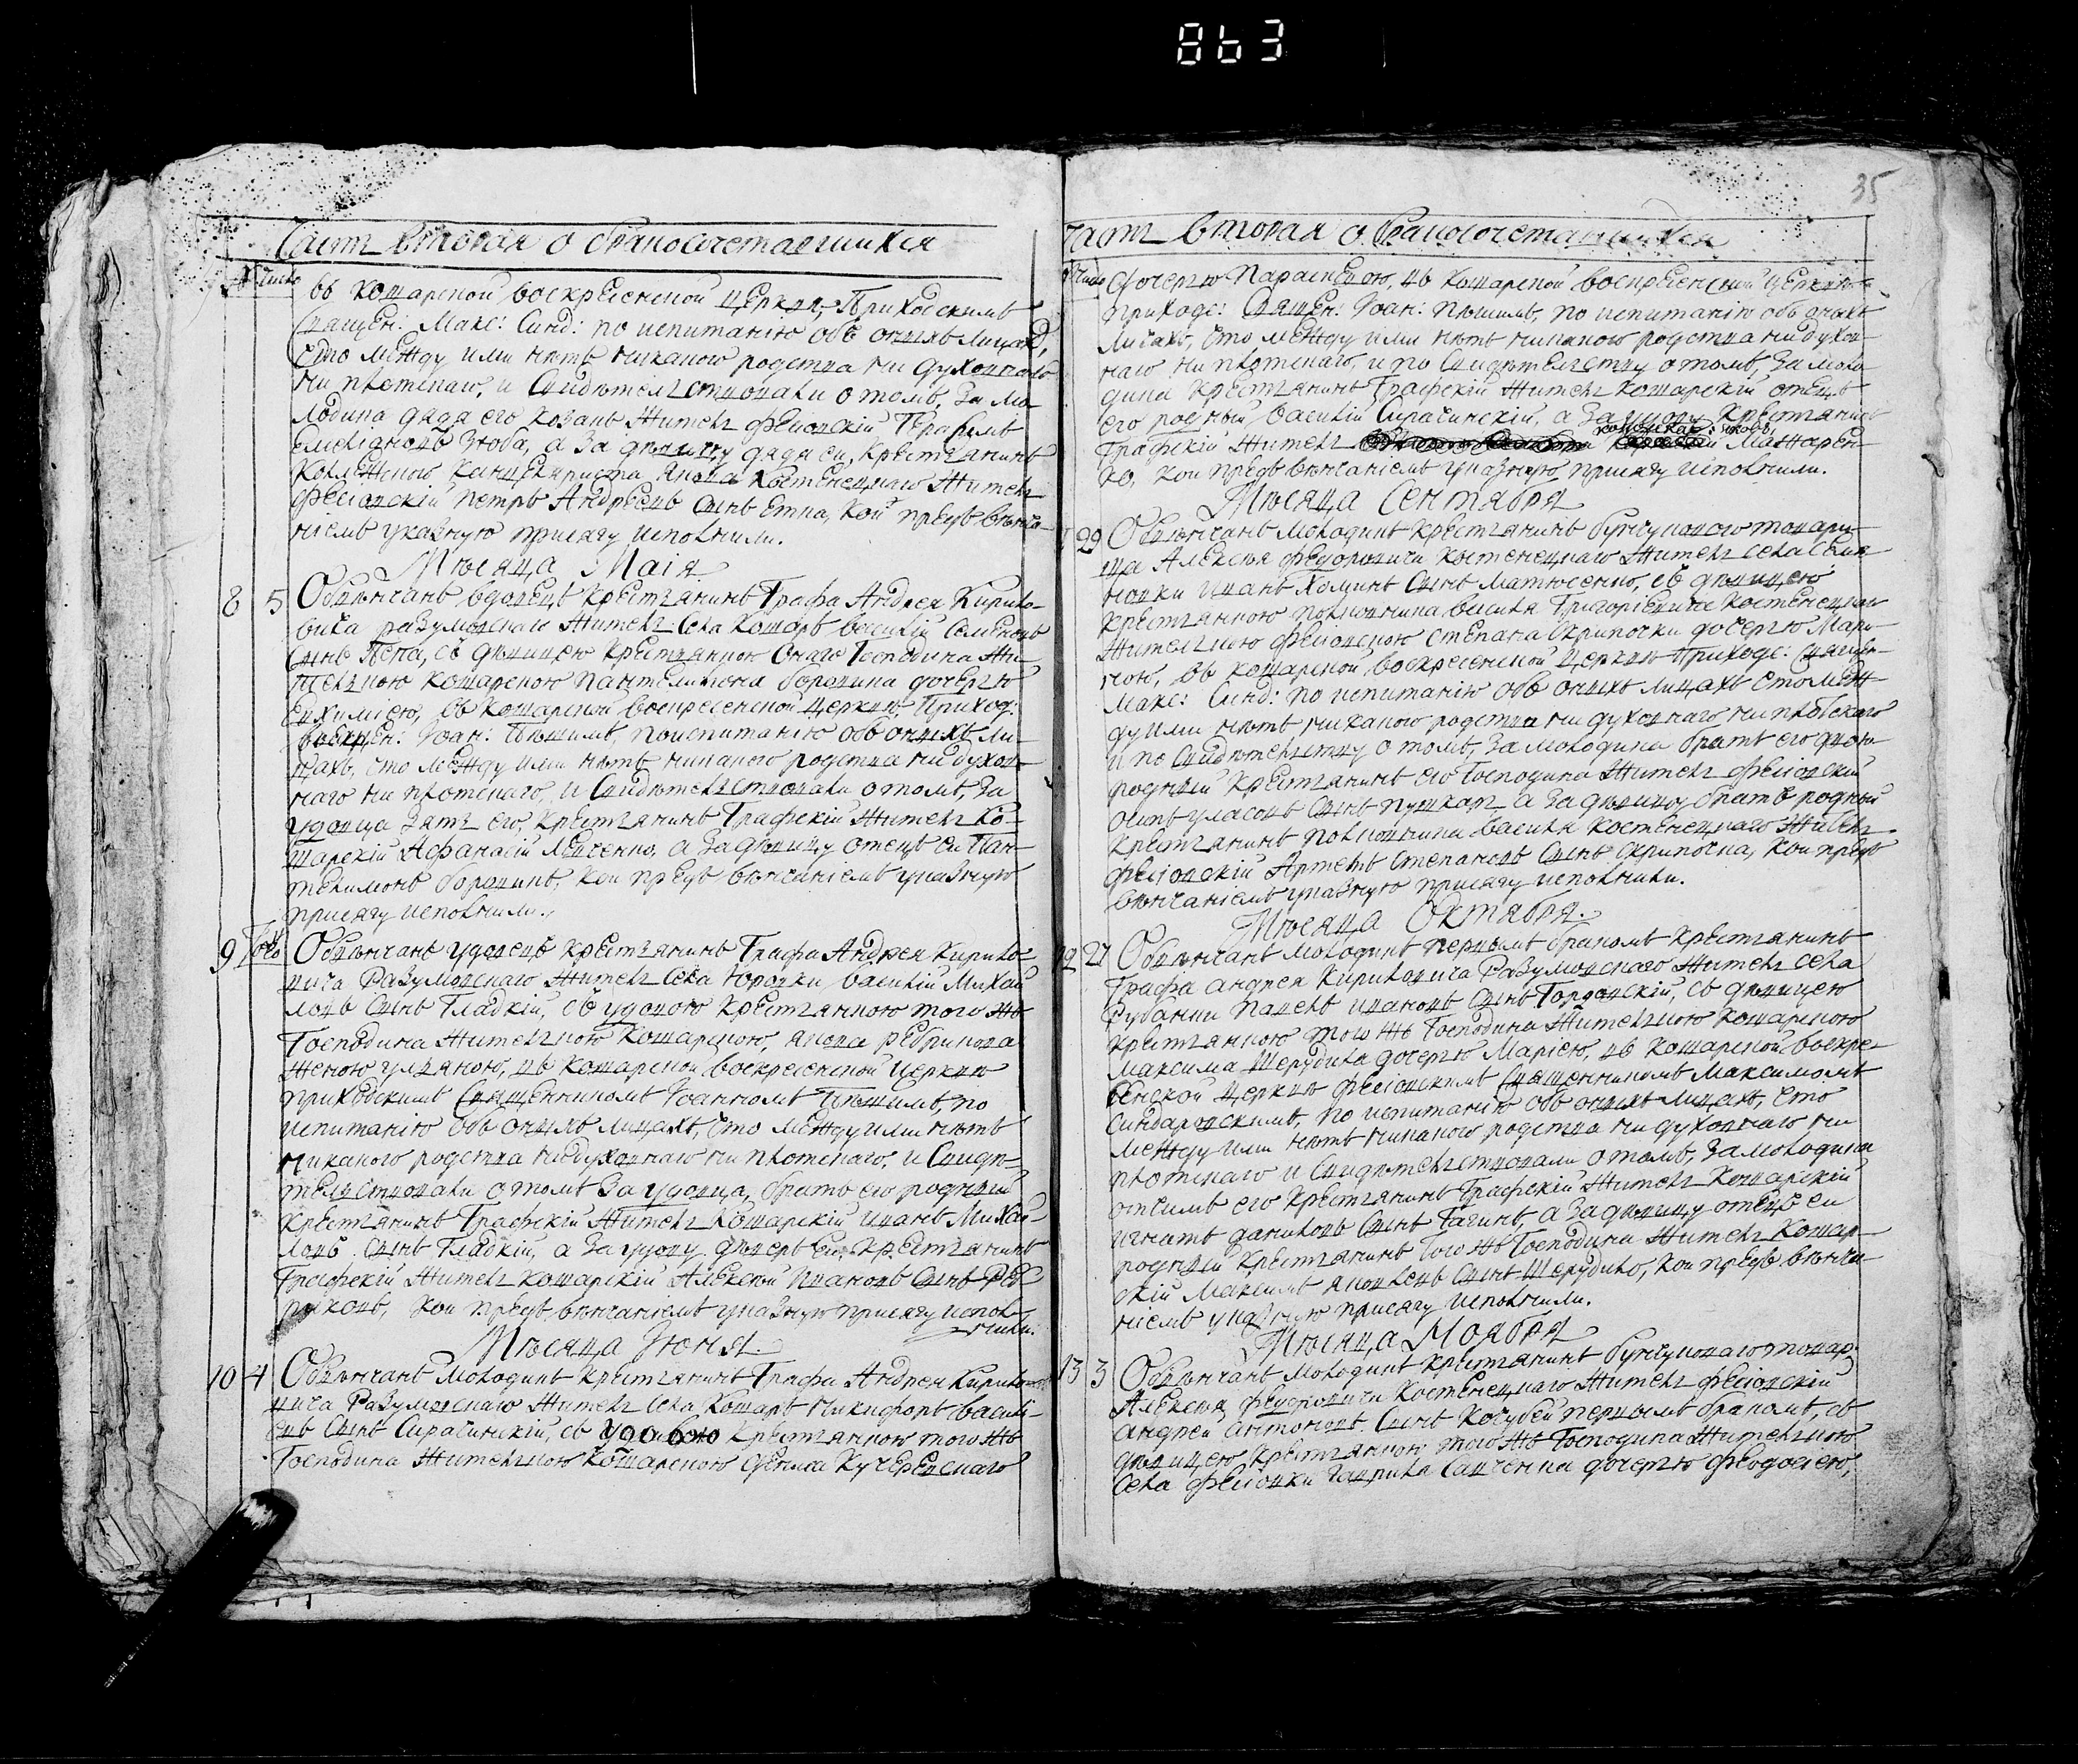 863
35
Часть вторая о бракосочетавшихся
№ Число
въ кошарской воскресенской церкви, Приходскимъ
Священ: Макс: Синд: по испитанію объ онихъ лицахъ,
Что между ими нѣтъ никакого родства ни духовнаго
ни плотскаго, и Свидѣтельствовали о томъ, За мо-
лодика дядя его козакъ Житель фесювскій Герасимъ
Емеліановъ Зюба, а За дѣвицу дядя ея, Крестянинъ
Колежского канцеляриста Якова Костенецкаго Житель
фесювскій Петръ Андреевъ Синъ Етка, Кои предъ вѣнча-
ніемъ указную присягу исполнили.
Мѣсяца Маія
8 5 Обвѣнчанъ вдовецъ крестянинъ Графа Андрея Кирило-
вича разумовскаго Житель Села Кошаръ василій Семеновъ
Синъ Пепа, съ дѣвицею крестянкою Онаго Господина Жи-
телкою кошарскою пантелимона боровика дочерю
Евхиміею, въ Кошарской воскресенской церкви, Приход:
Священ: Іоан: Пѣшимъ, по испитанію объ онихъ ли-
цахъ, Что между ими нѣтъ никакого родства ни духов-
наго ни плотскаго, и Свидѣтельствовали о томъ, За
удовца Зять его, Крестянинъ Графскій Житель Ко-
шарскій Афанасій Левченко, а За дѣвицу отецъ ея Пан-
телимонъ боровикъ, кои предъ вѣнчаніемъ указную
присягу исполнили.
9 Того Обвѣнчанъ удовецъ Крестянинъ Графа Андрея Кирило-
вича Разумовскаго Житель Села Юровки василій Михай-
ловъ Синъ Гладкій, съ удовою Крестянкою того жъ
Господина Жителкою Кошарскою, якова ребрикова
Женою уляною, въ Кошарской воскресенской церкви
приходскимъ Священникомъ Іоанномъ Пѣшимъ, по
испитанію объ онихъ лицахъ, что между ими нѣтъ
никакого родства ни духовнаго ни плотскаго, и Свидѣ-
тельствовали о томъ За удовца, братъ его родный
Крестянинъ Графскій Житель Кошарскій иванъ Михай-
ловъ Синъ Гладкій, а За удову деверь Ея Крестянинъ
Графскій Житель кошарскій Алексѣй Ивановъ Синъ Реб-
риковъ, кои предъ вѣнчаніемъ указную присягу испол-
нили.
Мѣсяца Іюня
10 4 Обвѣнчанъ молодикъ Крестянинъ Графа Андрея Кирило-
вича Разумовскаго Житель Села Кошаръ никифоръ василі-
евъ Синъ Сирачинскій, съ удовою Крестянкою того жъ
Господина Жителкою Кошарскою дениса Кучеревскаго
Часть вторая о бракосочетавшихся
Число
дочерю Параскевою, въ кошарской воскресенской церкви
приходс: Священ: Іоан: Пѣшимъ, по испитанію объ онихъ
лицахъ, Что между ими нѣтъ никакого родства ни духов-
наго ни плотскаго, и по Свидѣтелству о томъ, За моло-
дика Крестянинъ Графскій Житель кошарскій отецъ
его родный василій Сирачинскій, а За удову Крестянинъ
Графскій Житель Макарен-
ко, кои предъ вѣнчаніемъ указную присягу исполнили.
Мѣсяца Сентября
29 Обвѣнчанъ Молодикъ Крестянинъ бунчукового товари-
ща Алексѣя федоровича костенецкаго Житель села
иванъ Хоминъ Синъ матюсенко, съ дѣвицею
крестянкою полковника василя Григоріевича Костенецкаго
Жителкою фесювскою степана Скрипочки дочерю Мари-
ною, въ кошарской воскресенской церкви Приходс: Священ-
Макс: Синд: по испитанію объ онихъ лицахъ Что меж-
ду ими нѣтъ никакого родства ни духовнаго ни плотскаго
и по Свидѣтелству о томъ, За молодика братъ его двою-
родный Крестянинъ его Господина Житель фесювскій
осипъ уласовъ Синъ пушкаръ а За дѣвицу братъ родный
крестянинъ полковника василя Костенецкаго Житель
фесювскій Артемъ степановъ Синъ Скрипочка, кои предъ
вѣнчаніемъ указную присягу исполнили.
Мѣсяца Октября
12 27 Обвѣнчанъ молодикъ первымъ бракомъ Крестянинъ
Графа андрея Кириловича Разумовскаго Житель села
рубанки Павелъ ивановъ Синъ Гордовскій, съ дѣвицею
крестянкою того жъ Господина Жителкою Кошарскою
максима шерудила дочерю Маріею, въ кошарской воскре-
сенской церкви фесювскимъ Священникомъ Максимомъ
Синдаровскимъ, по испитанію объ онихъ лицахъ, Что
между ими нѣтъ никакого родства ни духовнаго ни
плотскаго и Свидѣтельствовали о томъ, За молодика
отчимъ его Крестянинъ Графскій Житель Кошарскій
игнатъ даниловъ Синъ Гагинъ, а За дѣвицу отецъ ея
родный Крестянинъ того жъ Господина Житель Кошар-
скій Максимъ яковлевъ Синъ шерудило, кои предъ вѣнча-
ніемъ указную присягу исполнили.
Мѣсяца Ноября
13 3 Обвѣнчанъ молодикъ Крестянинъ бунчуковаго товар:
Алексѣя федоровича Костенецкаго Житель фесювскій
андрей антоновъ Синъ Кочубей первымъ бракомъ, съ
дѣвицею Крестянкою того жъ Господина Жителкою
Села фесювки Гаврила Савченка дочерю феодосіею,